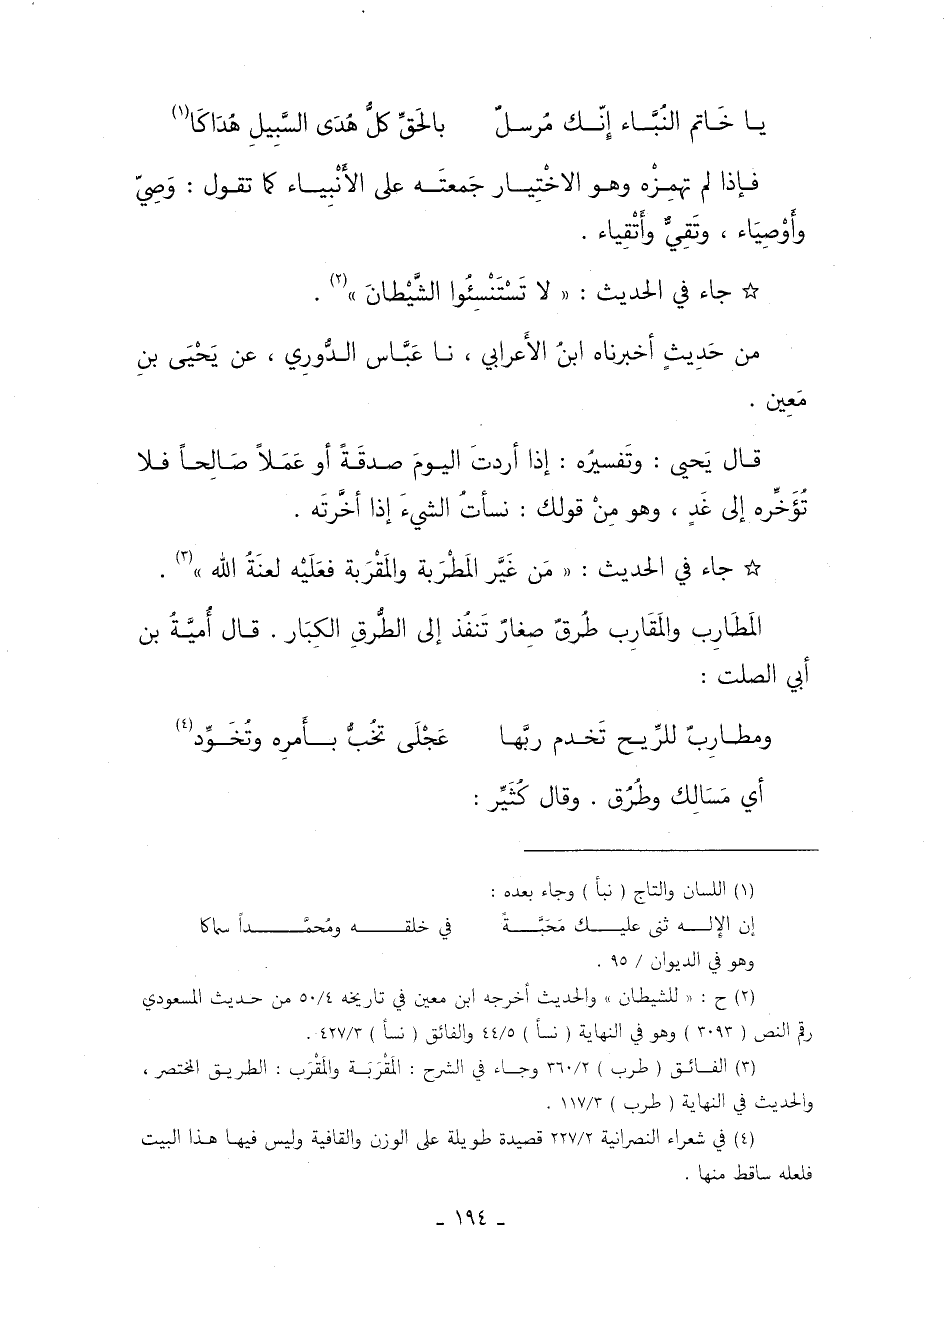 يا خَاتم النُبَّاء إنّك مُرسلّ بالحَقِّ كلُّ هُدَى السَّبيلِ هُدَاكَا(١)
فإذا لم تهمِزْه وهو الاخْتِيار جَمعتَه على الأَنْبِياء كما تقول : وَصِيّ
وأَوْصِيَاء ، وتَقِيٌّ وأَتْقِياء .
☆ جاء في الحديث : « لا تَسْتَنْسِئُوا الشَّيْطانَ »(٢) .
من حَدِيثٍ أخبرناه ابنُ الأَعرابي ، نا عَبَّاس الدُّوري ، عن يَحْيَى بنِ
مَعِين .
قال يَحيى : وتَفسيرُه : إذا أردتَ اليومَ صدقَةً أو عَمَلاً صَالِحاً فلا
تُؤَخِّره إلى غَدٍ ، وهو مِنْ قولك : نسأتُ الشيءَ إذا أخَّرتَه .
☆ جاء في الحديث : « مَن غَيَّر المَطْرَبة والمَقْرَبة فعَلَيْه لعنَةُ الله »(٣) .
المَطَارب والمَقارب طُرقٌ صغارٌ تَنفُذ إلى الطُّرقِ الكِبَار . قال أُميَّةُ بن
أبي الصلت :
ومطاربٌ للرِّيح تَخدم ربَّها عَجْلَى تخُبُّ بأَمره وتُخَوِّد(٤)
أي مَسَالِك وطُرُق . وقال كُثَيِّر :
(١) اللسان والتاج ( نبأ ) وجاء بعده :
إن الإله ثنى عليك مَحَبَّةً في خلقه ومُحمَّداً سماكا
وهو في الديوان / ٩٥ .
(٢) ح : « للشيطان » والحديث أخرجه ابن معين في تاريخه ٥٠/٤ من حديث المسعودي
رقم النص ( ٣٠٩٣ ) وهو في النهاية ( نسأ ) ٤٤/٥ والفائق ( نسأ ) ٤٢٧/٣ .
(٣) الفائق ( طرب ) ٣٦٠/٢ وجاء في الشرح : المَقْرَبَة والمَقْرَب : الطريق المختصر ،
والحديث في النهاية ( طرب ) ١١٧/٣ .
(٤) في شعراء النصرانية ٢٢٧/٢ قصيدة طويلة على الوزن والقافية وليس فيها هذا البيت
فلعله ساقط منها .
- ١٩٤ -